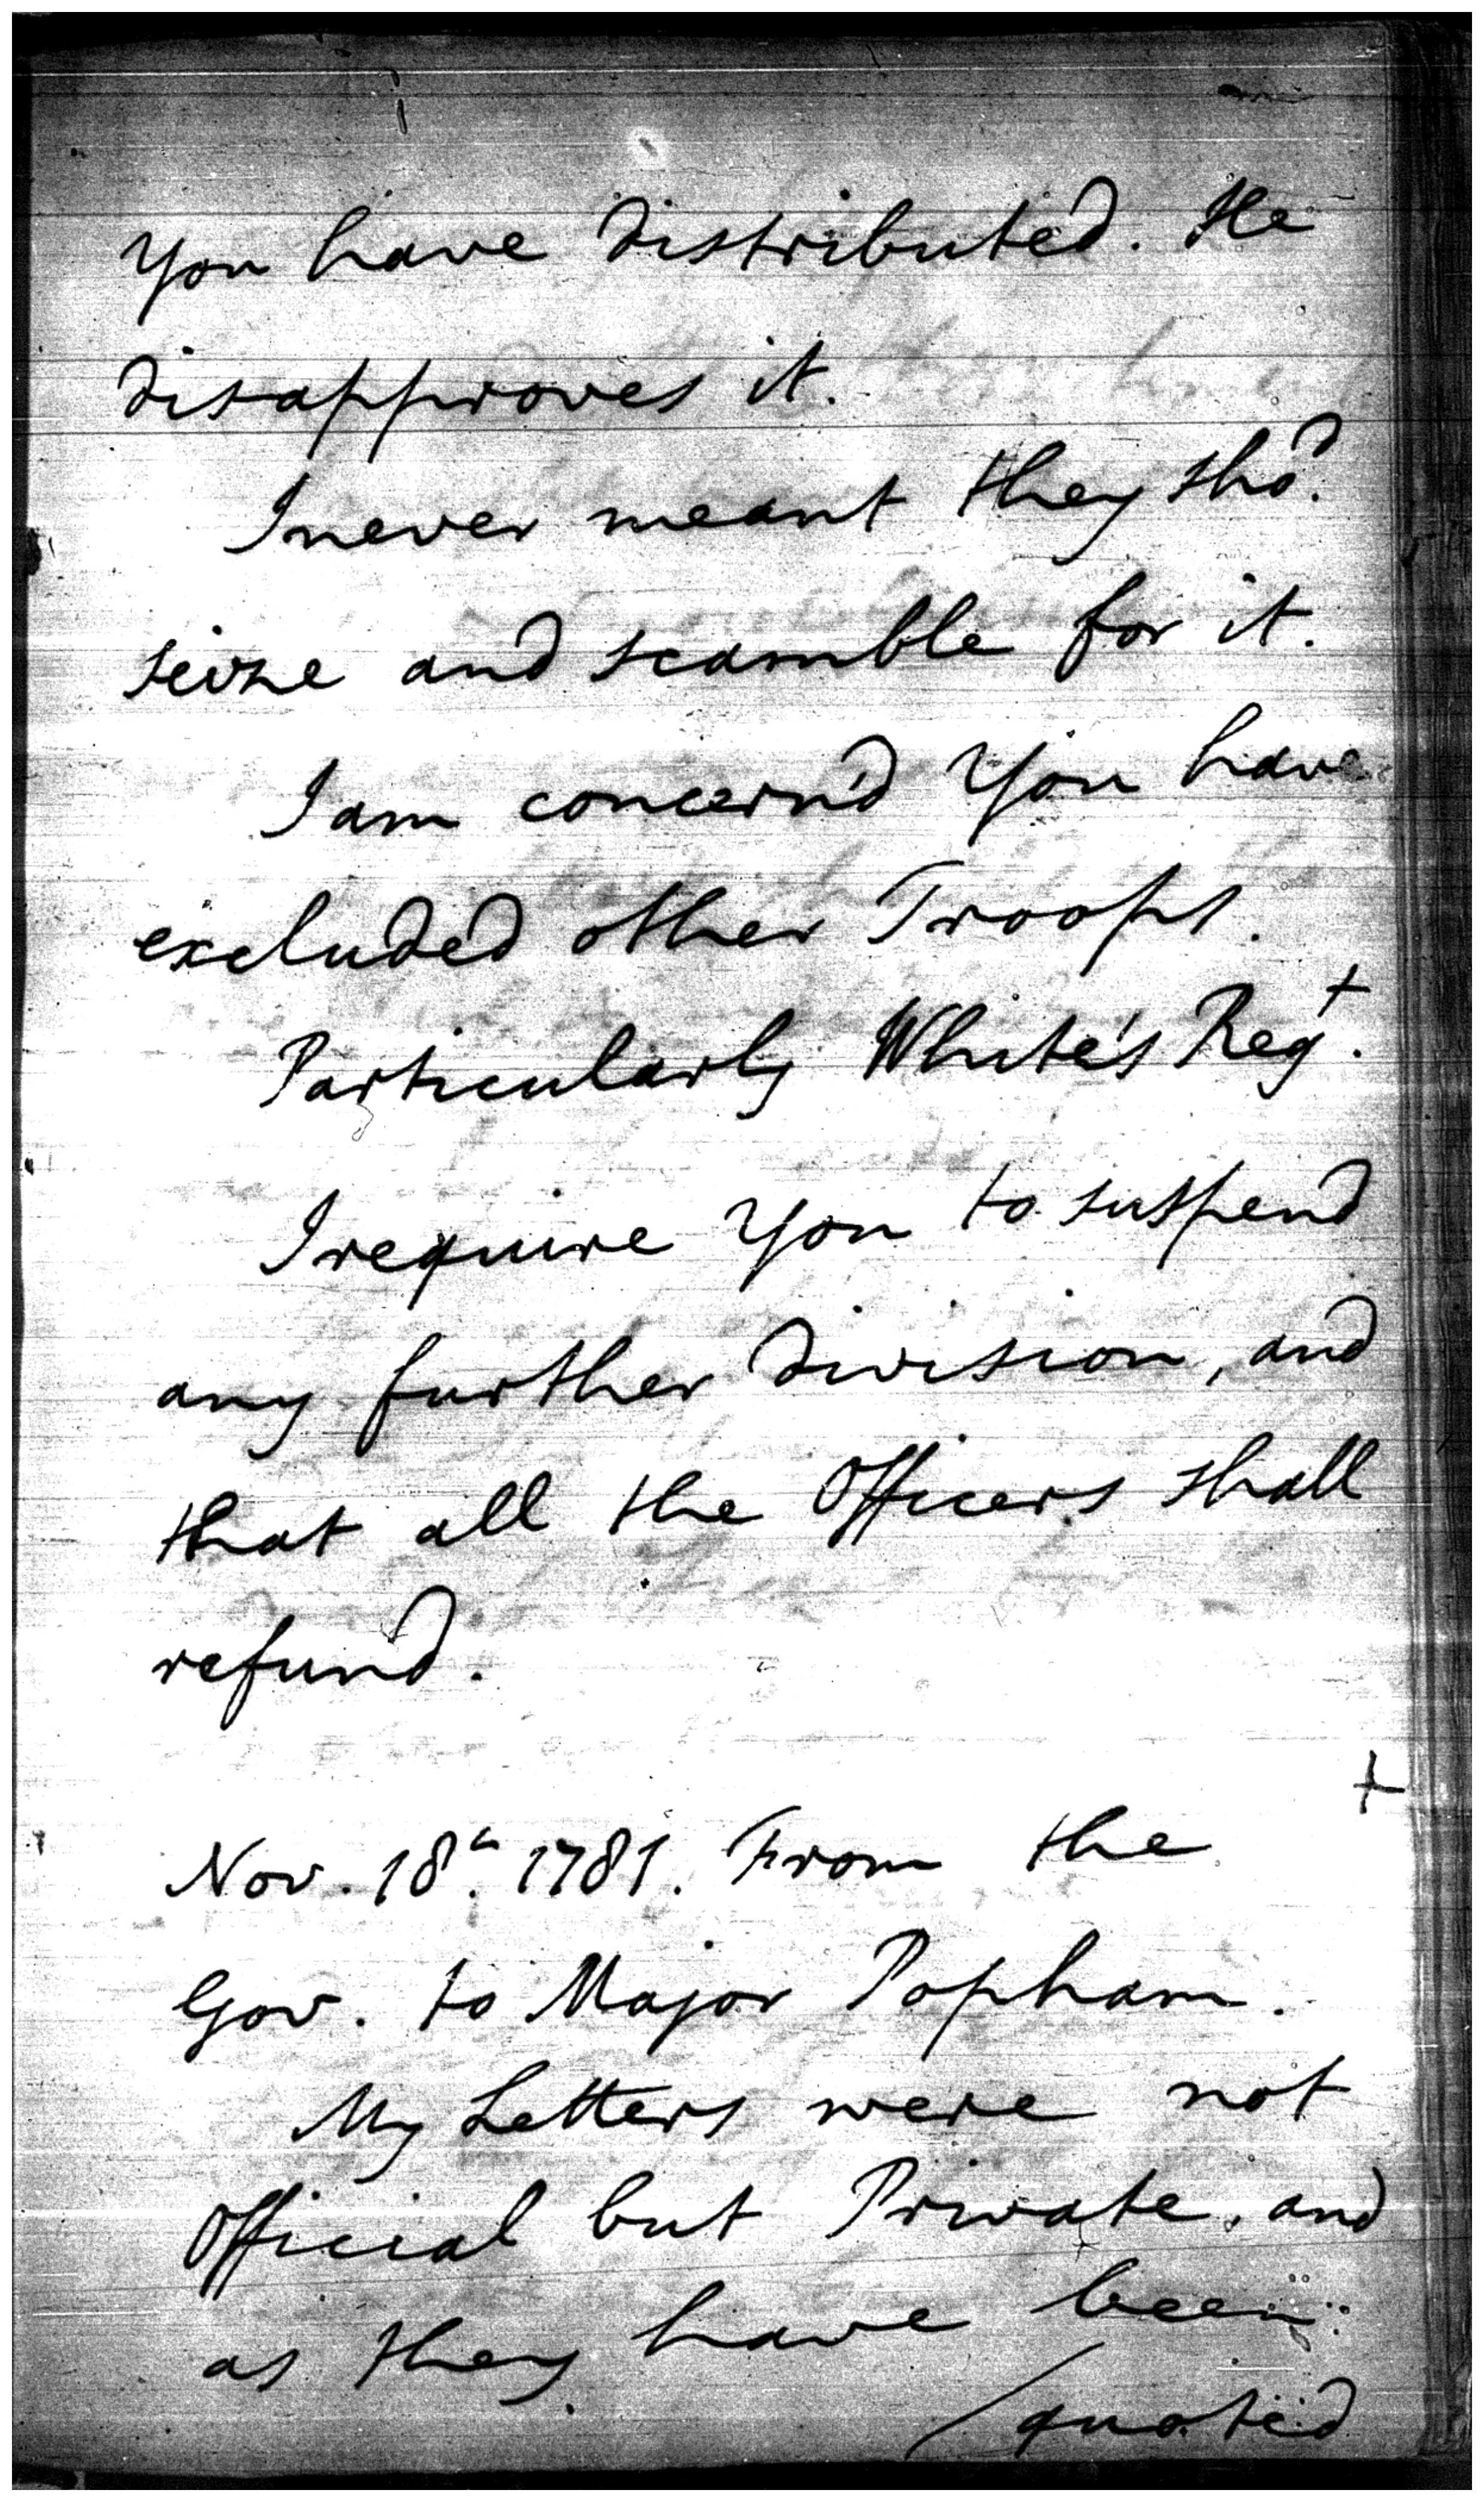 You have distributed. He
disapproves it.
I never meant they sho.d
seize and scamble for it.
I am concern'd You have
excluded other Troops.
Particularly White's Reg.t
I require You to suspend
any further division, and
that all the Officers shall
refund.
+
Nov. 18.th 1781. From the
Gov. to Major Popham.
My Letters were not
Official but Private, and
as they have been
quoted